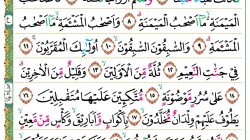 فَأَصْحَٰبُ الْمَيْمَنَةِ مَآ أَصْحَٰبُ الْمَيْمَنَةِ ٨ وَأَصْحَٰبُ الْمَشْـَٔمَةِ مَآ أَصْحَٰبُ
الْمَشْـَٔمَةِ ٩ وَالسَّٰبِقُونَ السَّٰبِقُونَ ١٠ أُولَٰٓئِكَ الْمُقَرَّبُونَ ١١
فِي جَنَّٰتِ النَّعِيمِ ١٢ ثُلَّةٌ مِّنَ الْأَوَّلِينَ ١٣ وَقَلِيلٌ مِّنَ الْآخِرِينَ ١٤
عَلَىٰ سُرُرٍ مَّوْضُونَةٍ ١٥ مُّتَّكِـِٔينَ عَلَيْهَا مُتَقَٰبِلِينَ ١٦
وِلْدَٰنٌ مُّخَلَّدُونَ ١٧ بِأَكْوَابٍ وَأَبَارِيقَ وَكَأْسٍ مِّن مَّعِينٍ